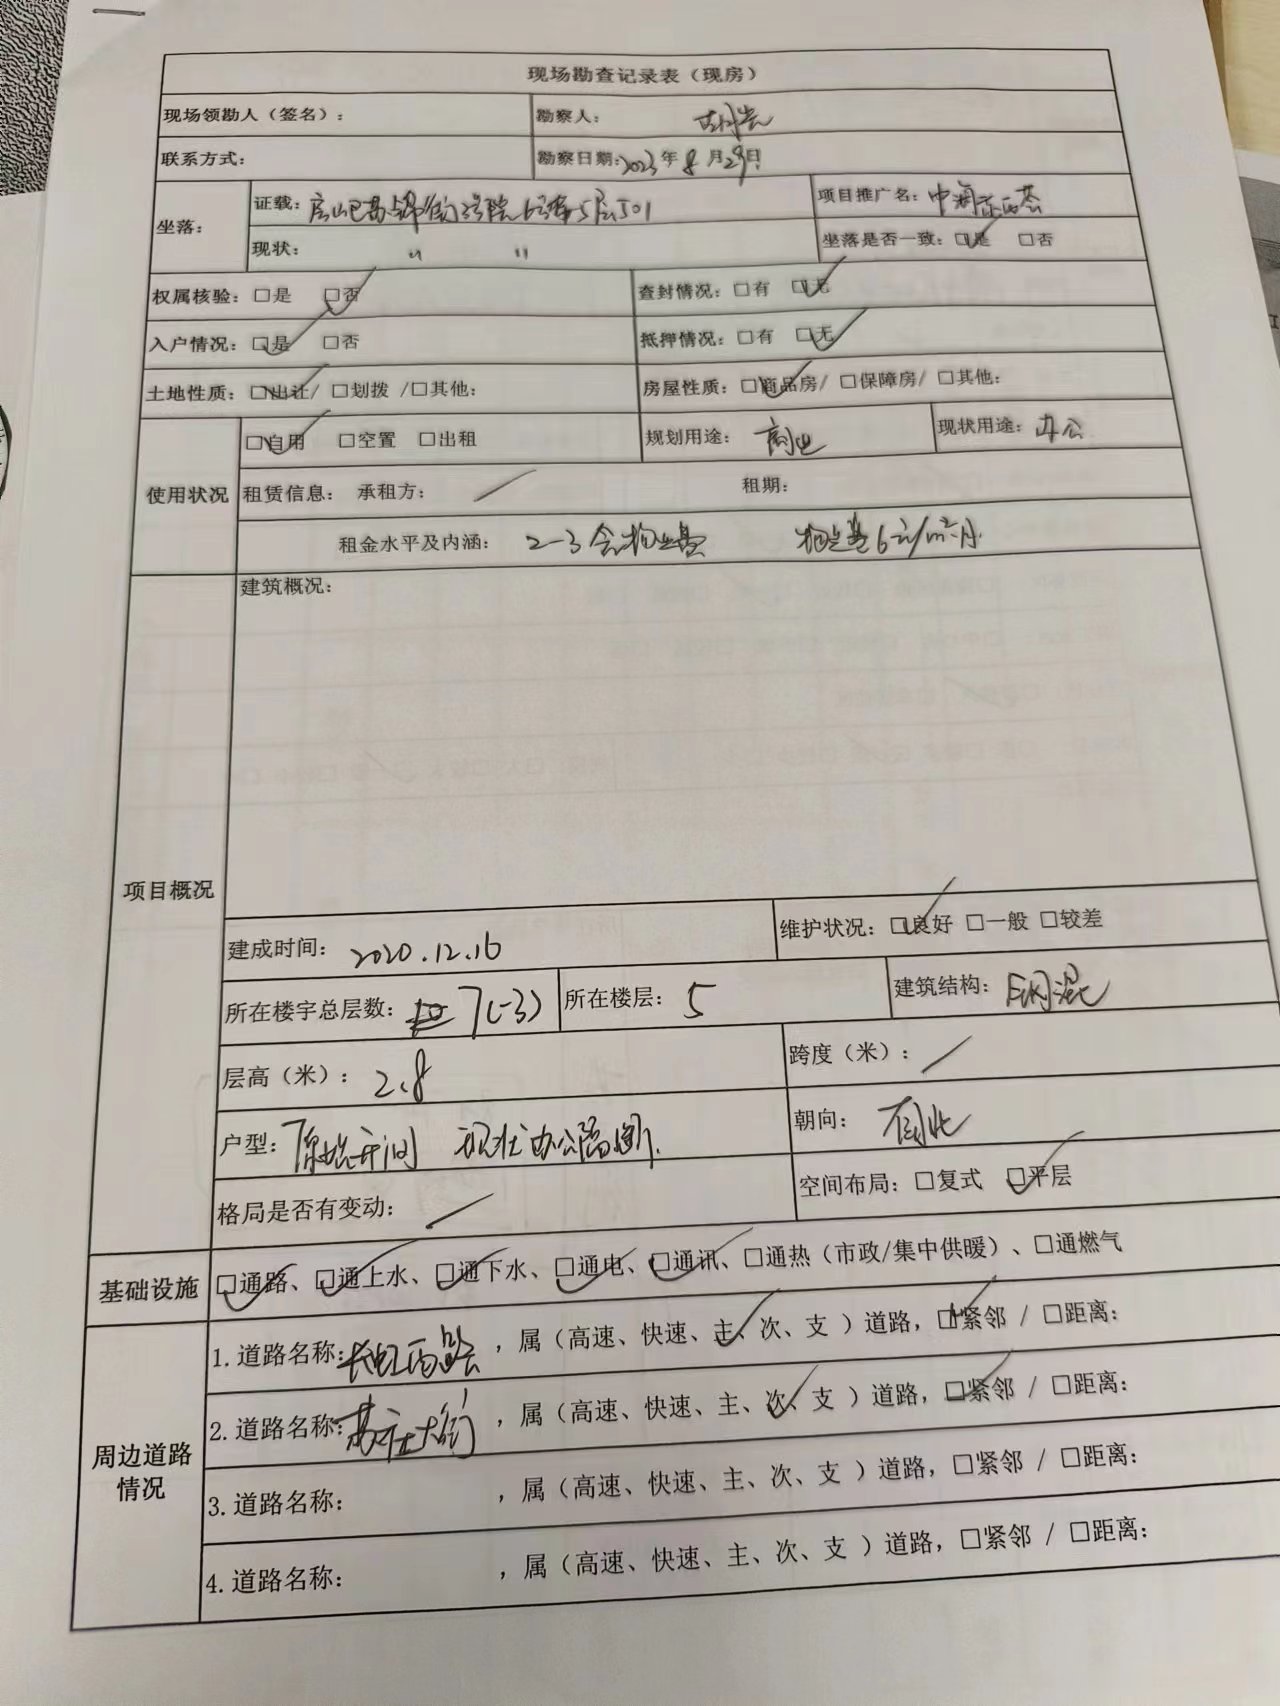 现场勘查记录表（现房）
现场领勘人（签名）： 勘察人：
联系方式： 勘察日期：2023年8月29日
坐落： 证载：房山区 街3号院6号楼5层501 项目推广名：中海
现状： 〃 〃 坐落是否一致：☑是 □否
权属核验：□是 ☑否 查封情况：□有 ☑无
入户情况：☑是 □否 抵押情况：□有 ☑无
土地性质：☑出让/ □划拨 /□其他： 房屋性质：☑商品房/ □保障房/ □其他：
使用状况 ☑自用 □空置 □出租 规划用途：商业 现状用途：办公
租赁信息： 承租方： / 租期：
租金水平及内涵： 2-3 含物业费 物业费6元/m²·月
项目概况 建筑概况：
建成时间：2020.12.16 维护状况：☑良好 □一般 □较差
所在楼宇总层数：7(-3) 所在楼层：5 建筑结构：钢混
层高（米）：2.8 跨度（米）：/
户型：原始开间 现状办公隔断. 朝向：南北
格局是否有变动：/ 空间布局：□复式 ☑平层
基础设施 ☑通路、☑通上水、☑通下水、☑通电、☑通讯、□通热（市政/集中供暖）、□通燃气
周边道路情况 1.道路名称：长虹西路，属（高速、快速、主✓、次、支 ）道路，☑紧邻 / □距离：
2.道路名称：苏庄大街，属（高速、快速、主、次✓、支 ）道路，☑紧邻 / □距离：
3.道路名称： ，属（高速、快速、主、次、支 ）道路，□紧邻 / □距离：
4.道路名称： ，属（高速、快速、主、次、支 ）道路，□紧邻 / □距离：